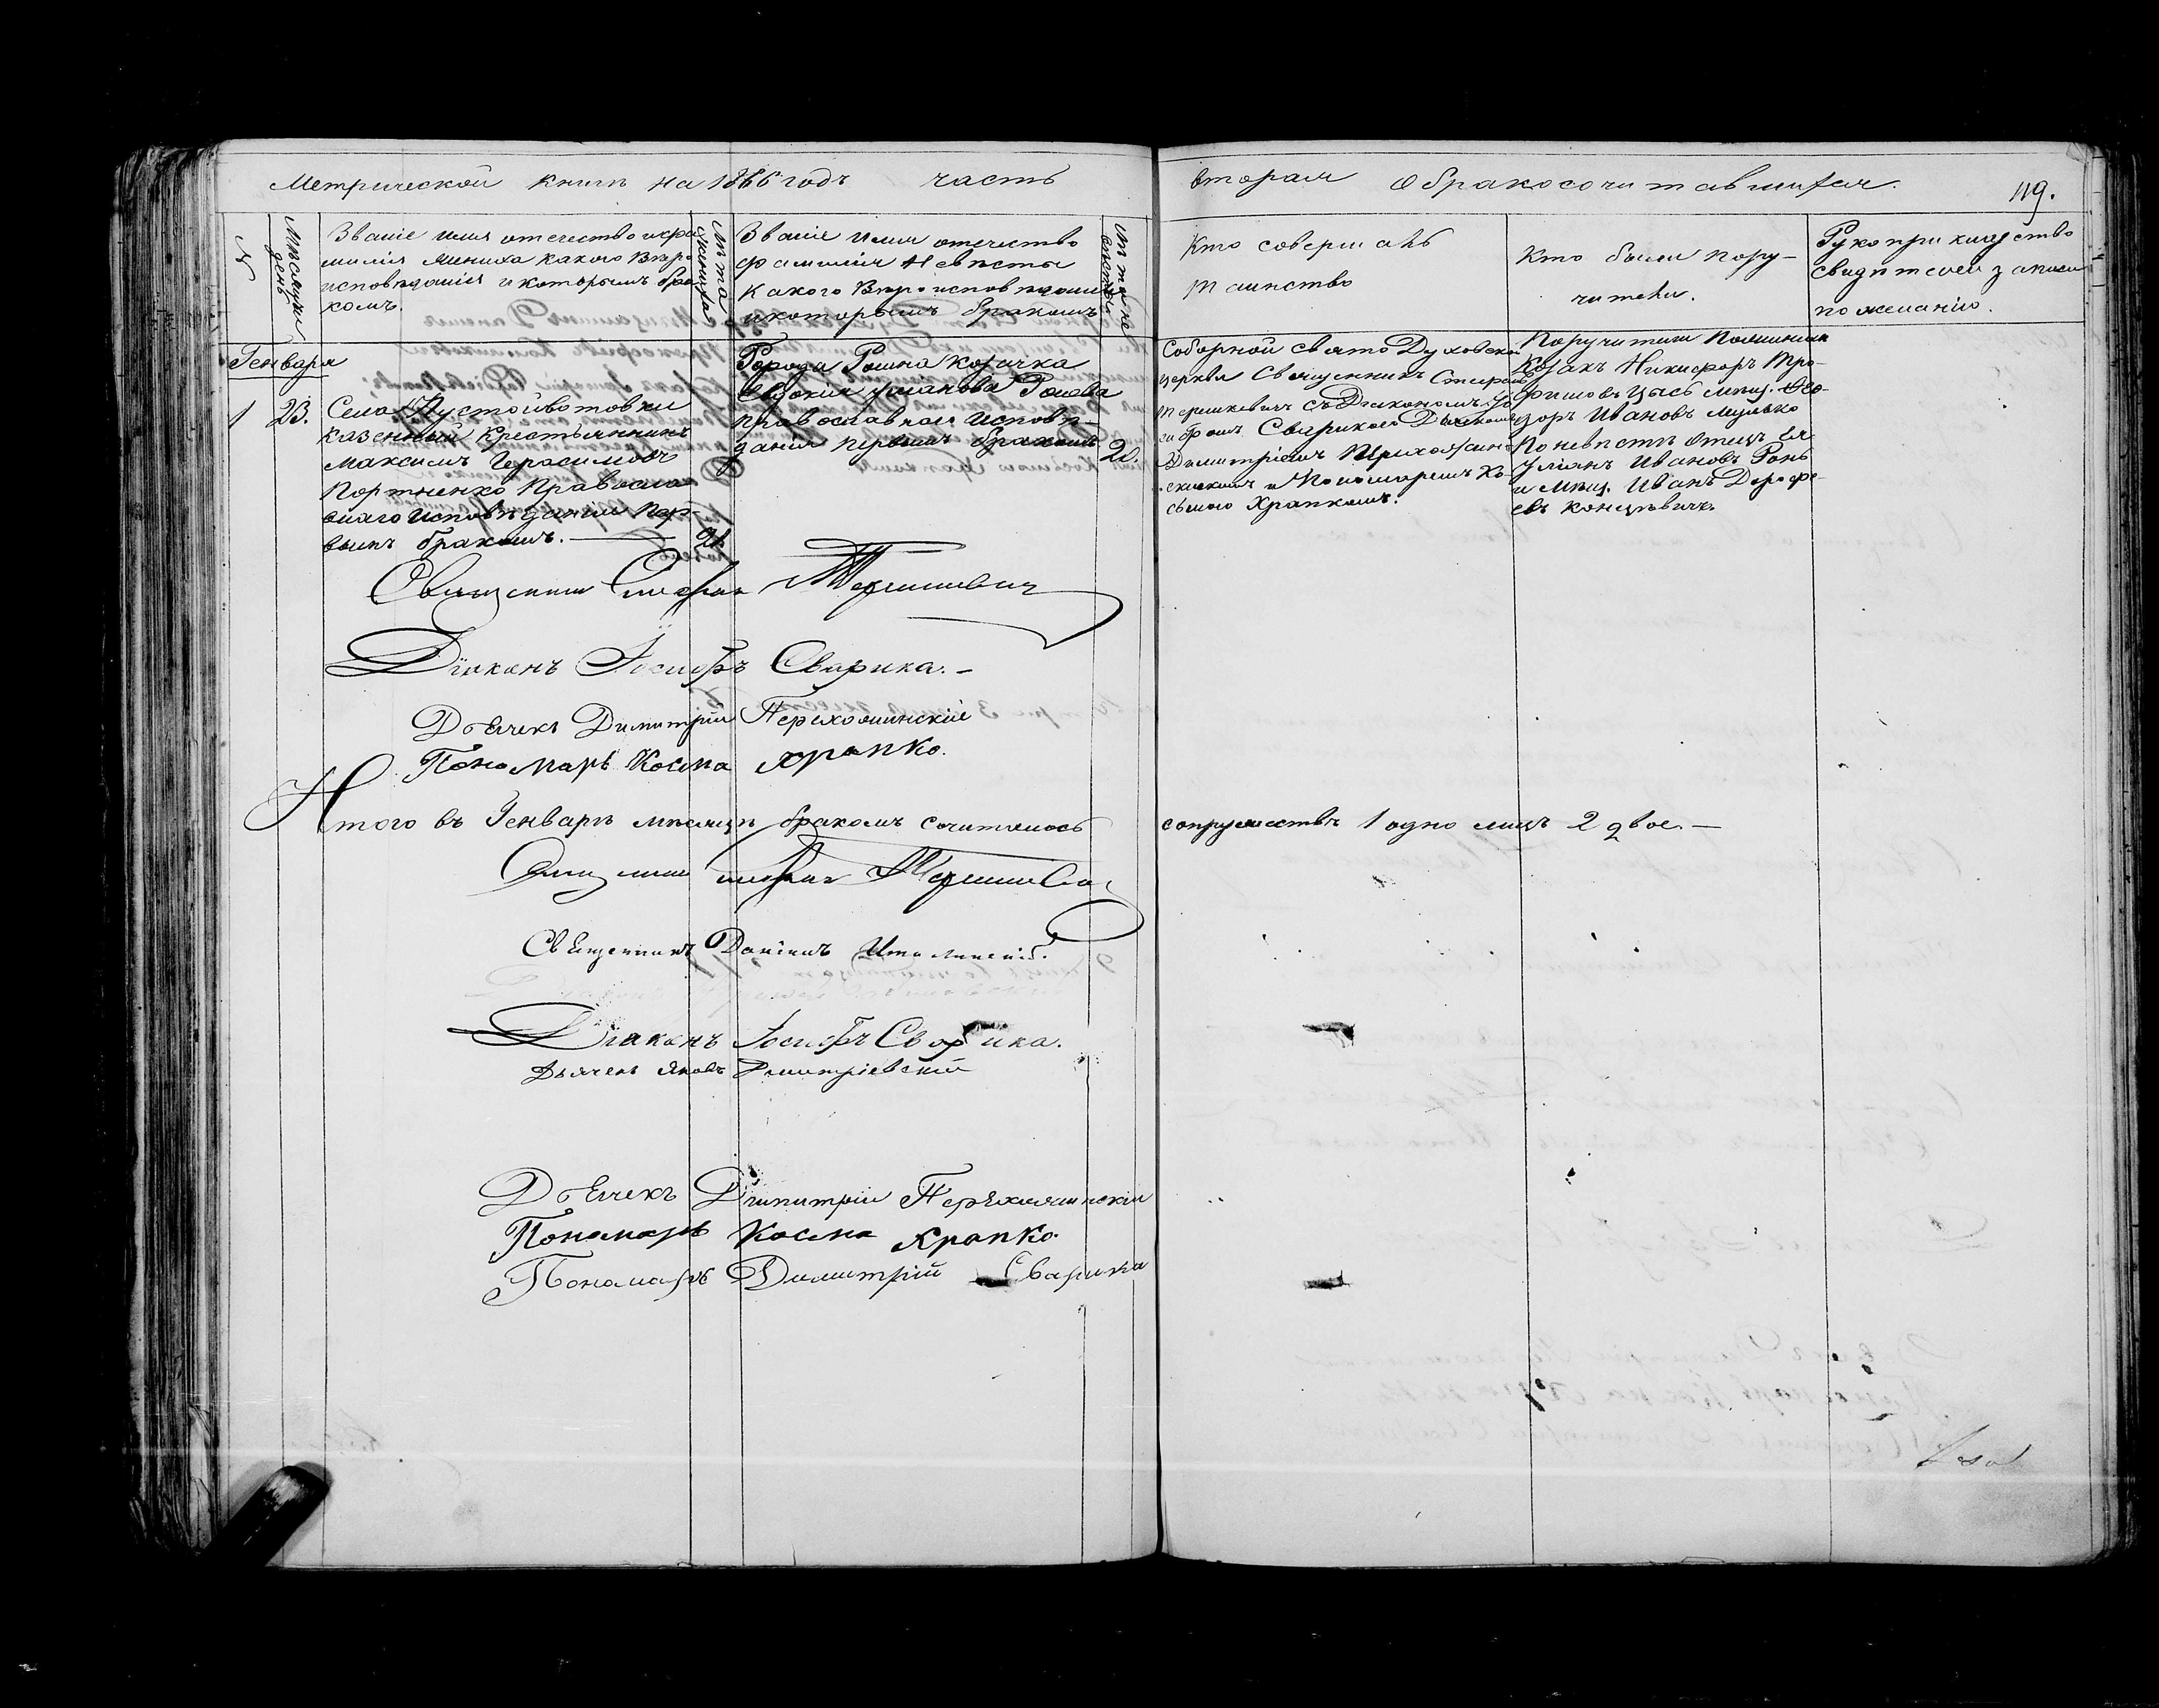 Метрической книги на 1866 годъ часть вторая О бракосочитавшихся. 119.
№
Мѣсяцъ и день
Званіе имя отечество и фа
милія жениха какого вѣро
исповѣданія и которымъ бра
комъ.
Лѣта жениха
Званіе имя отечество
фамилія невѣсты
какого вѣроисповѣданія
и которымъ бракомъ
Лѣта невѣсты
Кто совершалъ
таинство
Кто были пору-
чители.
Рукоприкладство
свидѣтелей записи
по желанію.
Генваря
1 23.
Села Пустовойтовки
казенный крестьянинъ
Максимъ Герасимовъ
Портненко Православ
внаго исповѣданія пер-
вымъ бракомъ. — 21.
Города Ромна козачка
Евдокія Уліанова
православнаго исповѣ-
данія первымъ бракомъ 20.
Соборной Свято Духовской
церкви Священникъ Стефанъ
Терешкевичъ съ Діакономъ Іо
сифомъ Сварикою Дьячкомъ
Димитріемъ
и Пономаремъ Ко-
сьмою Храпкомъ.
Поручители По женихѣ
козакъ Никифоръ Тро-
фимовъ мѣщ. Ѳео-
доръ Ивановъ
По невѣстѣ отецъ ея
Уліянъ Ивановъ
и мѣщ. Иванъ Дорофе-
евъ
Священникъ Стефанъ Терешкевичъ
Діаконъ Іосифъ Сварика. -
Дьячекъ Димитрій
Пономарь Косма Храпко.
Итого въ Генварѣ мѣсяцѣ бракомъ сочиталось супружествъ 1 одно лицъ 2 двое. —
Священникъ Стефанъ Терешкевичъ
Священникъ Даніилъ
Діаконъ Іосифъ Сварика.
Дьячекъ Яковъ Дмитріевскій
Дьячекъ Димитрій
Пономарь Косма Храпко.
Пономарь Димитрій Сварика